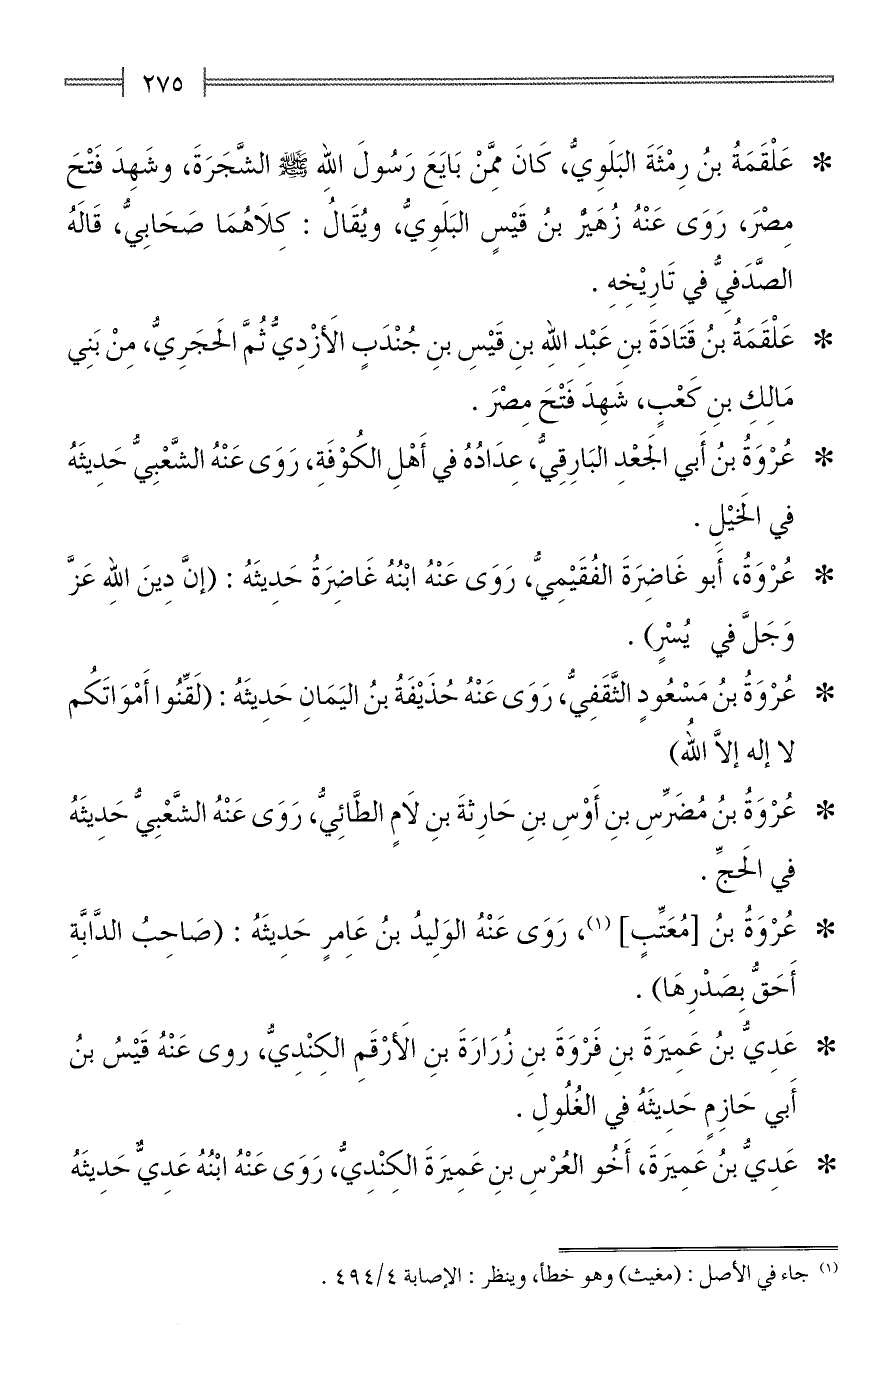 ٢٧٥
* عَلْقَمَةُ بنُ رِمْثَةَ البَلَوِيُّ، كَانَ مِمَّنْ بَايَعَ رَسُولَ اللهِ ﷺ الشَّجَرَةَ، وشَهِدَ فَتْحَ
مِصْرَ، رَوَى عَنْهُ زُهَيْرُ بنُ قَيْسٍ البَلَوِيُّ، ويُقَالُ : كِلَاهُمَا صَحَابِيٌّ، قَالَهُ
الصَّدَفيُّ في تَارِيْخِهِ .
* عَلْقَمَةُ بنُ قَتَادَةَ بنِ عَبْدِ اللهِ بنِ قَيْسِ بنِ جُنْدَبٍ الأَزْدِيُّ ثُمَّ الحَجَرِيُّ، مِنْ بَنِي
مَالِكِ بنِ كَعْبٍ، شَهِدَ فَتْحَ مِصْرَ .
* عُرْوَةُ بنُ أَبي الجَعْدِ البَارِقِيُّ، عِدَادُهُ في أَهْلِ الكُوْفَةِ، رَوَى عَنْهُ الشَّعْبِيُّ حَدِيثَهُ
في الخَيْلِ .
* عُرْوَةُ، أَبو غَاضِرَةَ الفُقَيْمِيُّ، رَوَى عَنْهُ ابْنُهُ غَاضِرَةُ حَدِيثَهُ : (إنَّ دِينَ اللهِ عَزَّ
وَجَلَّ في يُسْرٍ) .
* عُرْوَةُ بنُ مَسْعُودٍ الثَّقَفِيُّ، رَوَى عَنْهُ حُذَيْفَةُ بنُ اليَمَانِ حَدِيثَهُ : (لَقِّنُوا أَمْوَاتَكُم
لا إله إلاَّ اللهُ)
* عُرْوَةُ بنُ مُضَرِّسِ بنِ أَوْسِ بنِ حَارِثةَ بنِ لَامٍ الطَّائِيُّ، رَوَى عَنْهُ الشَّعْبِيُّ حَدِيثَهُ
في الحَجِّ .
* عُرْوَةُ بنُ [مُعَتِّبٍ] (١)، رَوَى عَنْهُ الوَلِيدُ بنُ عَامِرٍ حَدِيثَهُ : (صَاحِبُ الدَّابَّةِ
أَحَقُّ بِصَدْرِهَا) .
* عَدِيُّ بنُ عَمِيرَةَ بنِ فَرْوَةَ بنِ زُرَارَةَ بنِ الأَرْقَمِ الكِنْدِيُّ، روى عَنْهُ قَيْسُ بنُ
أَبي حَازِمٍ حَدِيثَهُ في الغُلُولِ .
* عَدِيُّ بنُ عَمِيرَةَ، أَخُو العُرْسِ بنِ عَمِيرَةَ الكِنْدِيُّ، رَوَى عَنْهُ ابْنُهُ عَدِيٌّ حَدِيثَهُ
(١) جاء في الأصل : (مغيث) وهو خطأ، وينظر : الإصابة ٤/٤٩٤ .